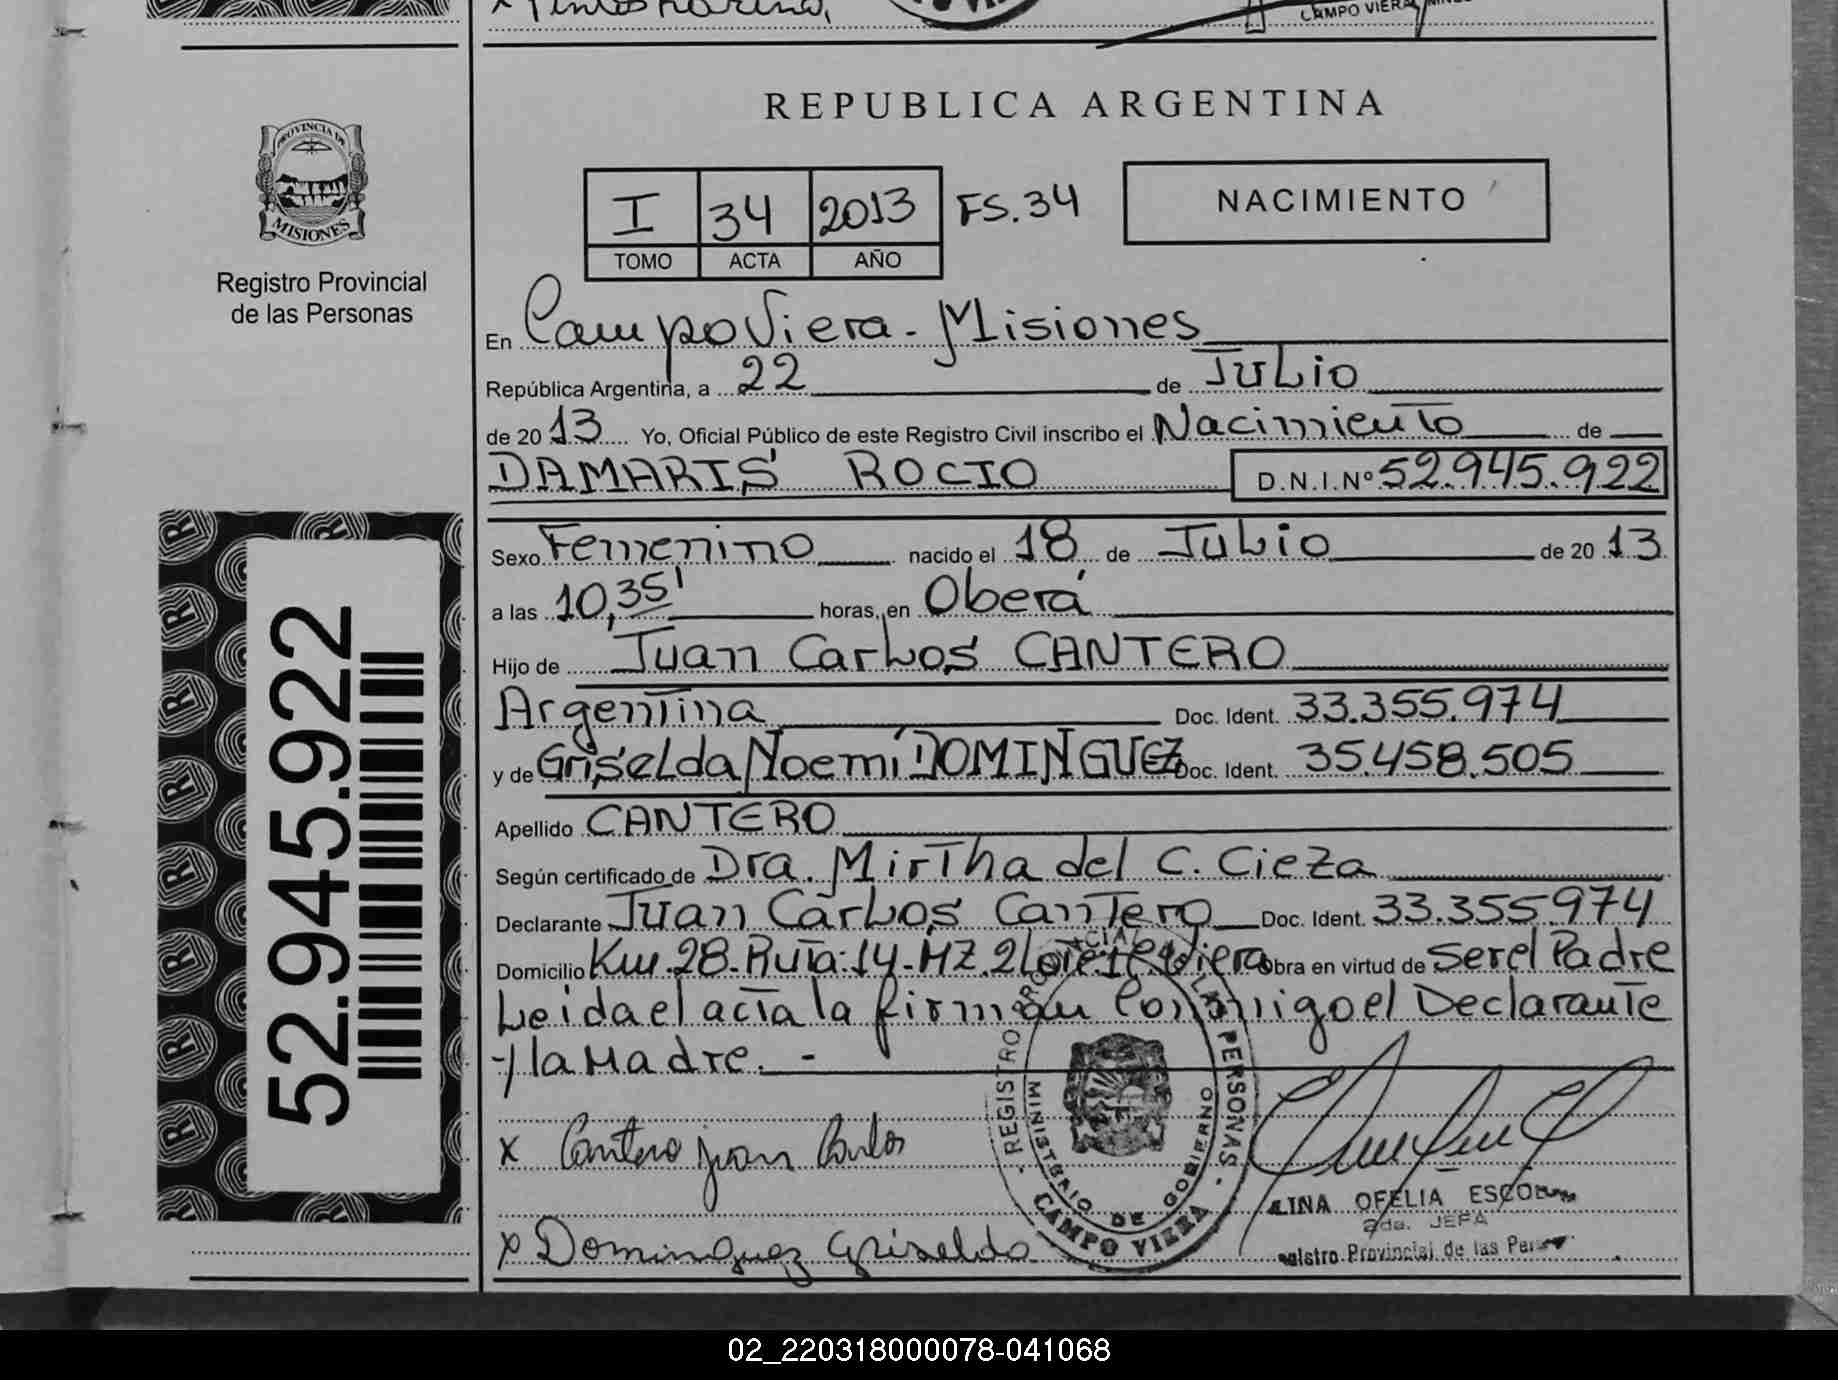 CAMPO VIERA
REPUBLICA ARGENTINA
PROVINCIA DE
MISIONES
Registro Provincial
de las Personas
I 34 2013 FS.34
TOMO ACTA AÑO
NACIMIENTO
En Campo Viera - Misiones
República Argentina, a 22 de Julio
de 20 13 Yo, Oficial Público de este Registro Civil inscribo el Nacimiento de
DAMARIS ROCIO D.N.I.Nº 52.945.922
Sexo Femenino nacido el 18 de Julio de 20 13
a las 10,35' horas, en Oberá
Hijo de Juan Carlos CANTERO
Argentina Doc. Ident. 33.355.974
y de Griselda Noemí DOMINGUEZ Doc. Ident. 35.458.505
Apellido CANTERO
Según certificado de Dra. Mirtha del C. Cieza
Declarante Juan Carlos Cantero Doc. Ident. 33.355.974
Domicilio Km. 28-Ruta:14-MZ.2 Lote 1 C. Viera Obra en virtud de Ser el Padre
Leida el acta la firman Conmigo el Declarante
y la Madre. -
x Cantero juan Carlos
x Dominguez Griselda
REGISTRO PERSONAS
MINISTERIO DE GOBIERNO
CAMPO VIERA
LINA OFELIA
2da. JEFA
Registro Provincial de las
52.945.922
02_220318000078-041068